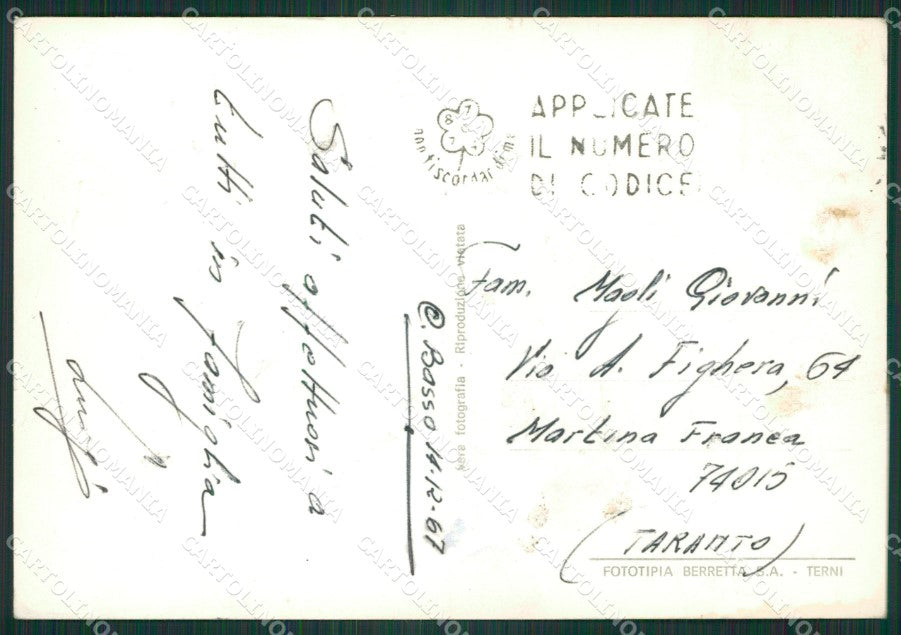 APPLICATE
IL NUMERO
DI CODICE
non ti scordar di me
Fam. Magli Giovanni
Via A. Fighera, 64
Martina Franca
74015
(TARANTO)
FOTOTIPIA BERRETTA S.A. - TERNI
Vera fotografia - Riproduzione vietata
C. Basso 14-12-67
Saluti affettuosi a
tutti in famiglia
CARTOLINOMANIA